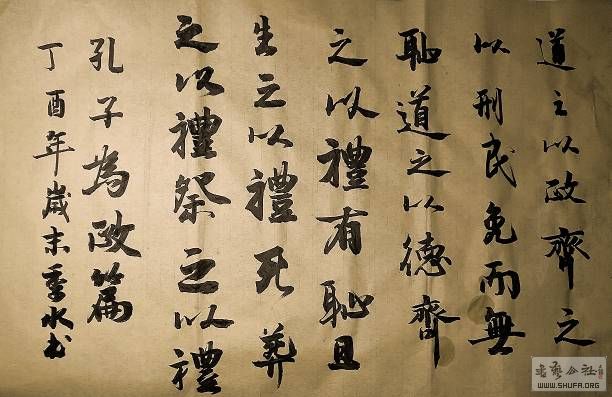 道之以政齊之
以刑民免而無
恥道之以德齊
之以禮有恥且
生之以禮死葬
之以禮祭之以禮
孔子為政篇
丁酉年歲末季水书
WWW.SHUFA.ORG